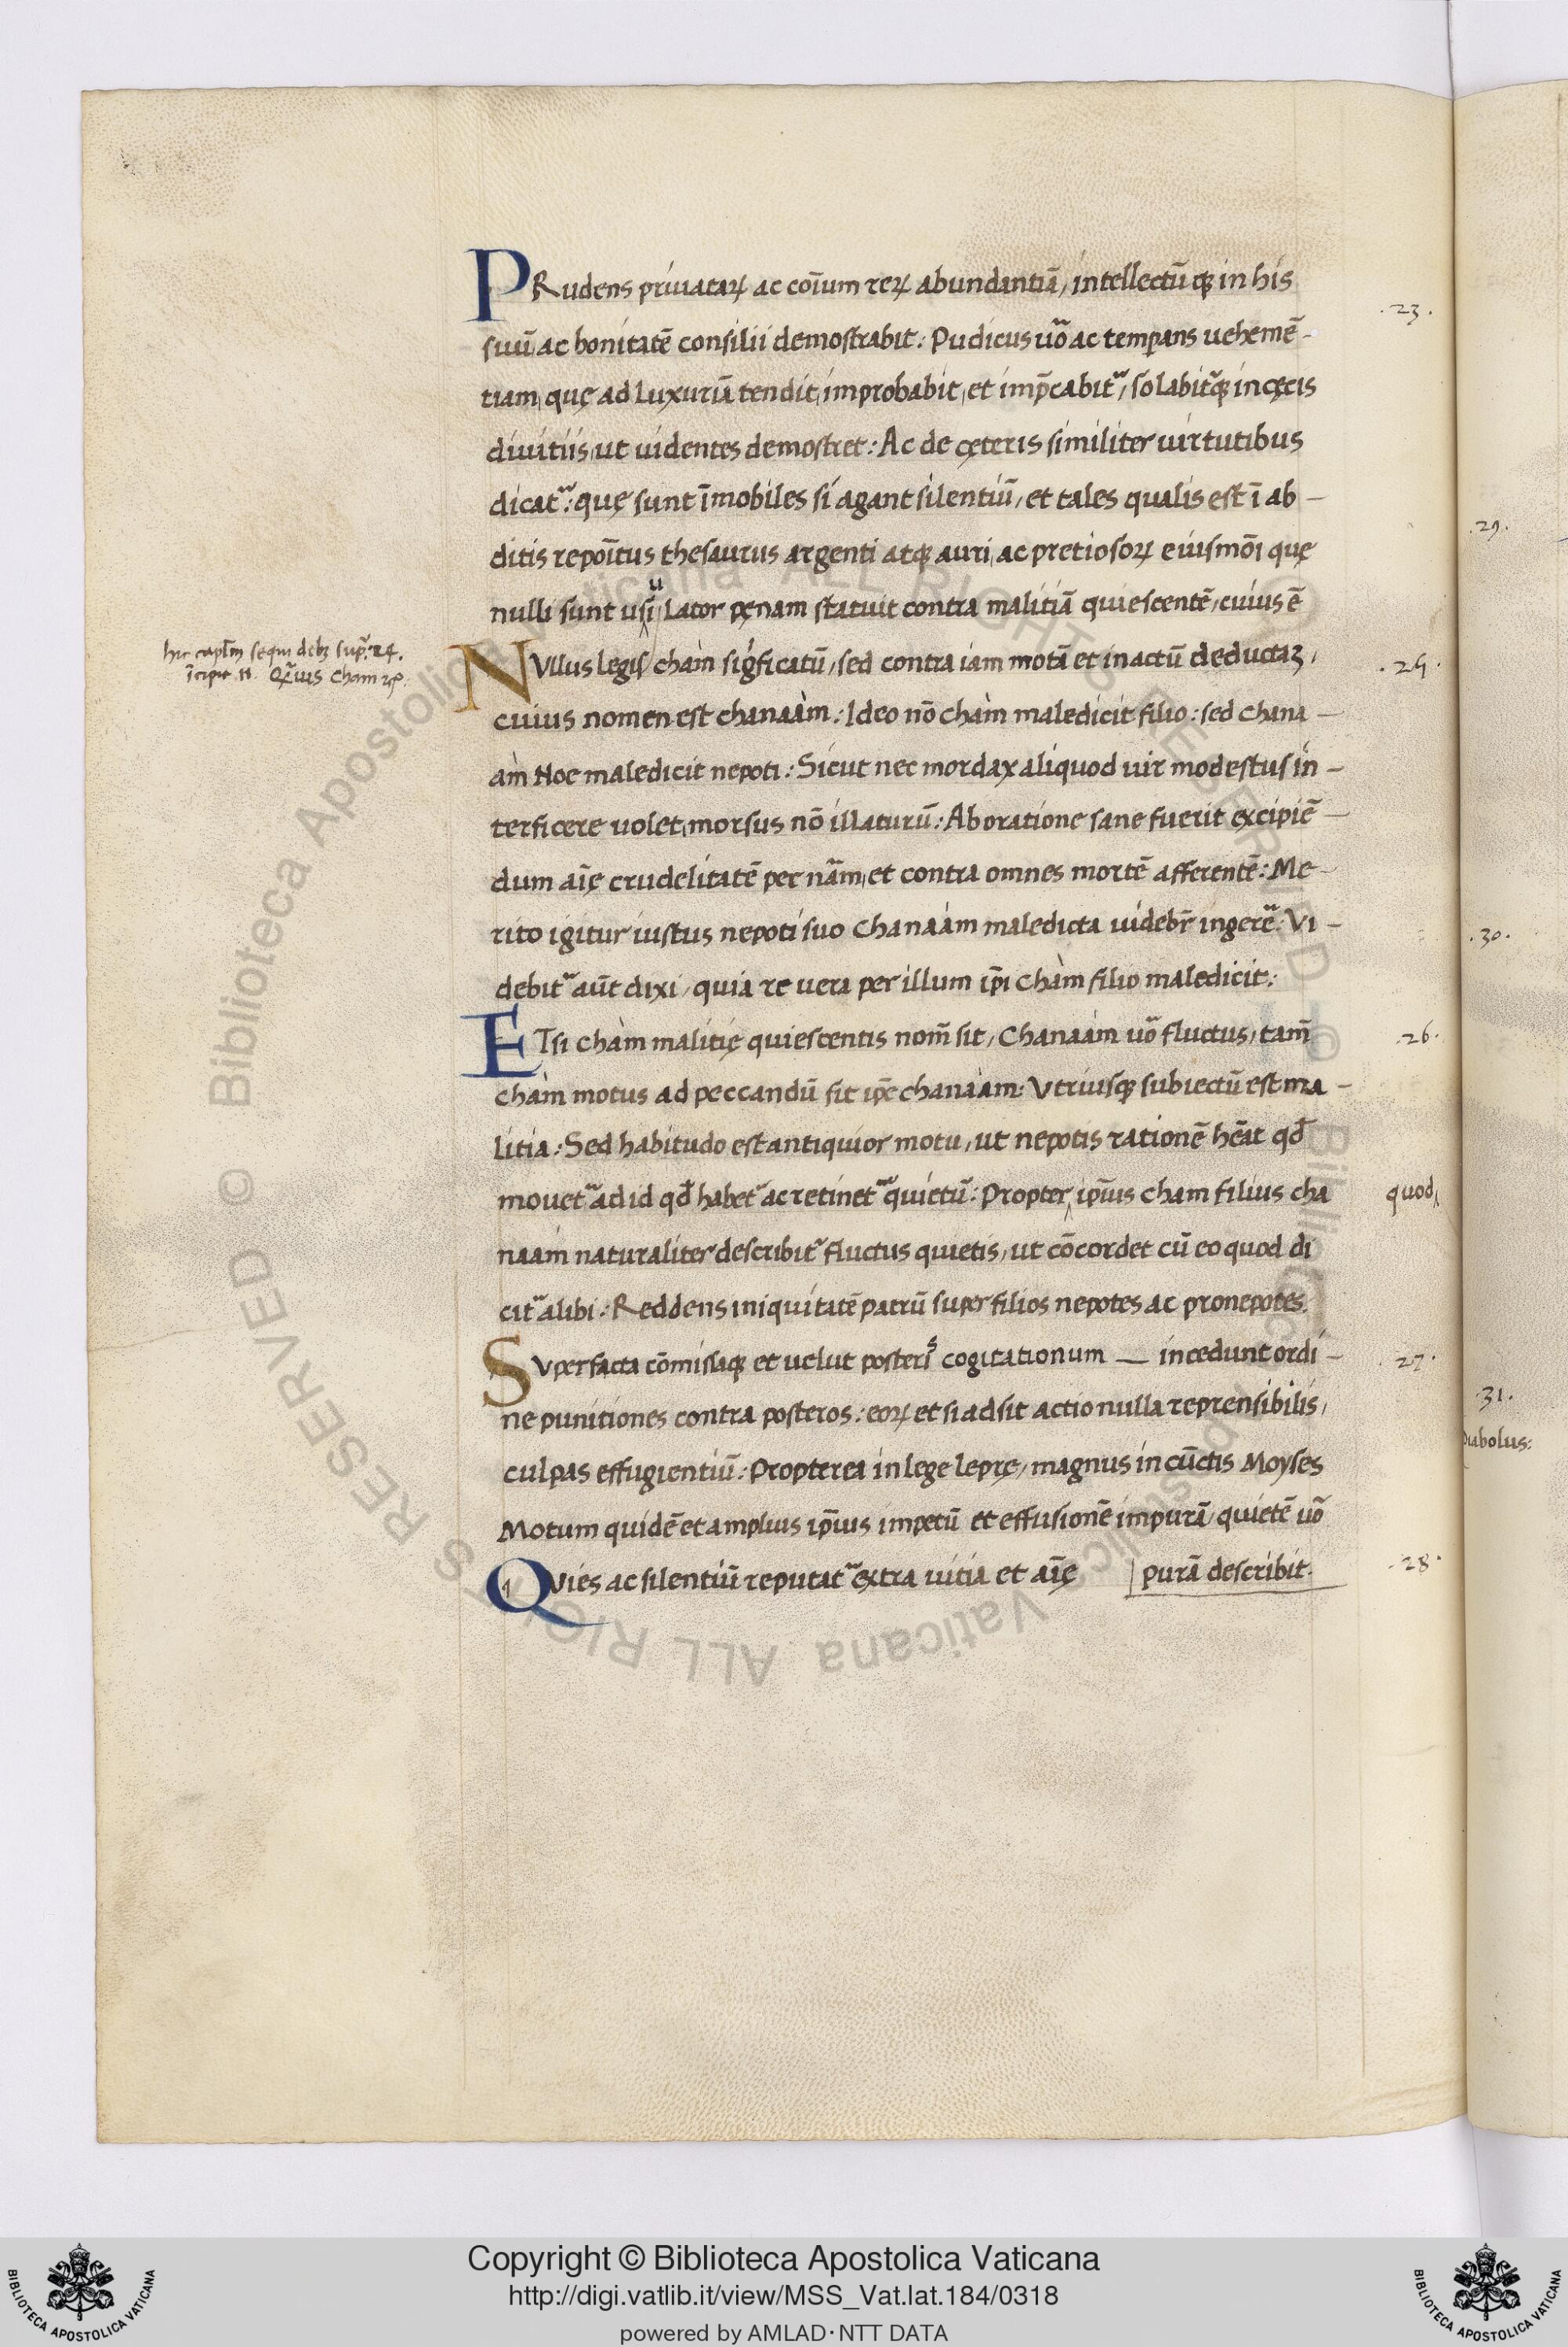 PRudens priuataꝝ ac coīum reꝝ abundantiā, intellectū qꝫ in his
suū ac bonitatē consilii demostrabit: Pudicus uō ac temꝑans uehemē-
tiam, quę ad luxuriā tendit, improbabit, et imp̄cabitᵃ, solabitᵃqꝫ in cęcis
diuitiis, ut uidentes demostret: Ac de cęteris similiter uirtutibus
dicatᵃ: quę sunt īmobiles si agant silentiū, et tales qualis est ī ab-
ditis repoītus thesaurus argenti atqꝫ auri, ac pretiosoꝝ eiusmōi quę
nulli sunt usui, Lator pęnam statuit contra malitiā quiescentē, cuius ē
NVllus legis chàm sigficatū, sed contra iam motā et in actū deductaꝫ,
cuius nomen est chanaàm: Ideo nō chàm maledicit filio: sed chana-
àm Noe maledicit nepoti: Sicut nec mordax aliquod uir modestus in-
terficere uolet, morsus nō illaturū: Ab oratione sane fuerit excipiē-
dum aīę crudelitatē per nām, et contra omnes mortē afferentē: Me-
rito igitur iustus nepoti suo Chanaàm maledicta uidebr̄ ingerē: Vi-
debitᵃ aūt dixi, quia re uera per illum ip̄i chàm filio maledicit:
ETsi chàm malitię quiescentis nom̄ sit, Chanaàm uō fluctus, tam̄
chàm motus ad peccandū fit ip̄e chanaàm: Vtriusqꝫ subiectū est ma-
litia: Sed habitudo est antiquior motu, ut nepotis rationē hēat qd̄
mouetᵃ ad id qd̄ habetᵃ ac retinetᵃ quietū: Propter ip̄ius cham filius cha
naam naturaliter describitᵃ fluctus quietis, ut cōcordet cū eo quod di
citᵃ alibi: Reddens iniquitatē patrū super filios nepotes ac pronepotes.
SVper facta cōmissaqꝫ et uelut posteris cogitationum — incedunt ordi-
ne punitiones contra posteros: eoꝝ et si adsit actio nulla reprensibilis,
culpas effugientiū: Propterea in lege leprę, magnus in cūctis Moyses
Motum quidē et amplius ip̄ius impetū et effusionē impurā, quietē uō
QVies ac silentiū reputatᵃ extra uitia et aīę | purā describit.
hic capl̄m sequi debꝫ sup̄ 24.
īcipit
Cham
.23.
.25.
.26.
quod
.27.
.28.
.29.
.30.
.31.
Diabolus:
© Biblioteca Apostolica Vaticana ALL RIGHTS RESERVED
© Biblioteca Apostolica Vaticana ALL RIGHTS RESERVED
BIBLIOTECA APOSTOLICA VATICANA
Copyright © Biblioteca Apostolica Vaticana
http://digi.vatlib.it/view/MSS_Vat.lat.184/0318
powered by AMLAD·NTT DATA
BIBLIOTECA APOSTOLICA VATICANA